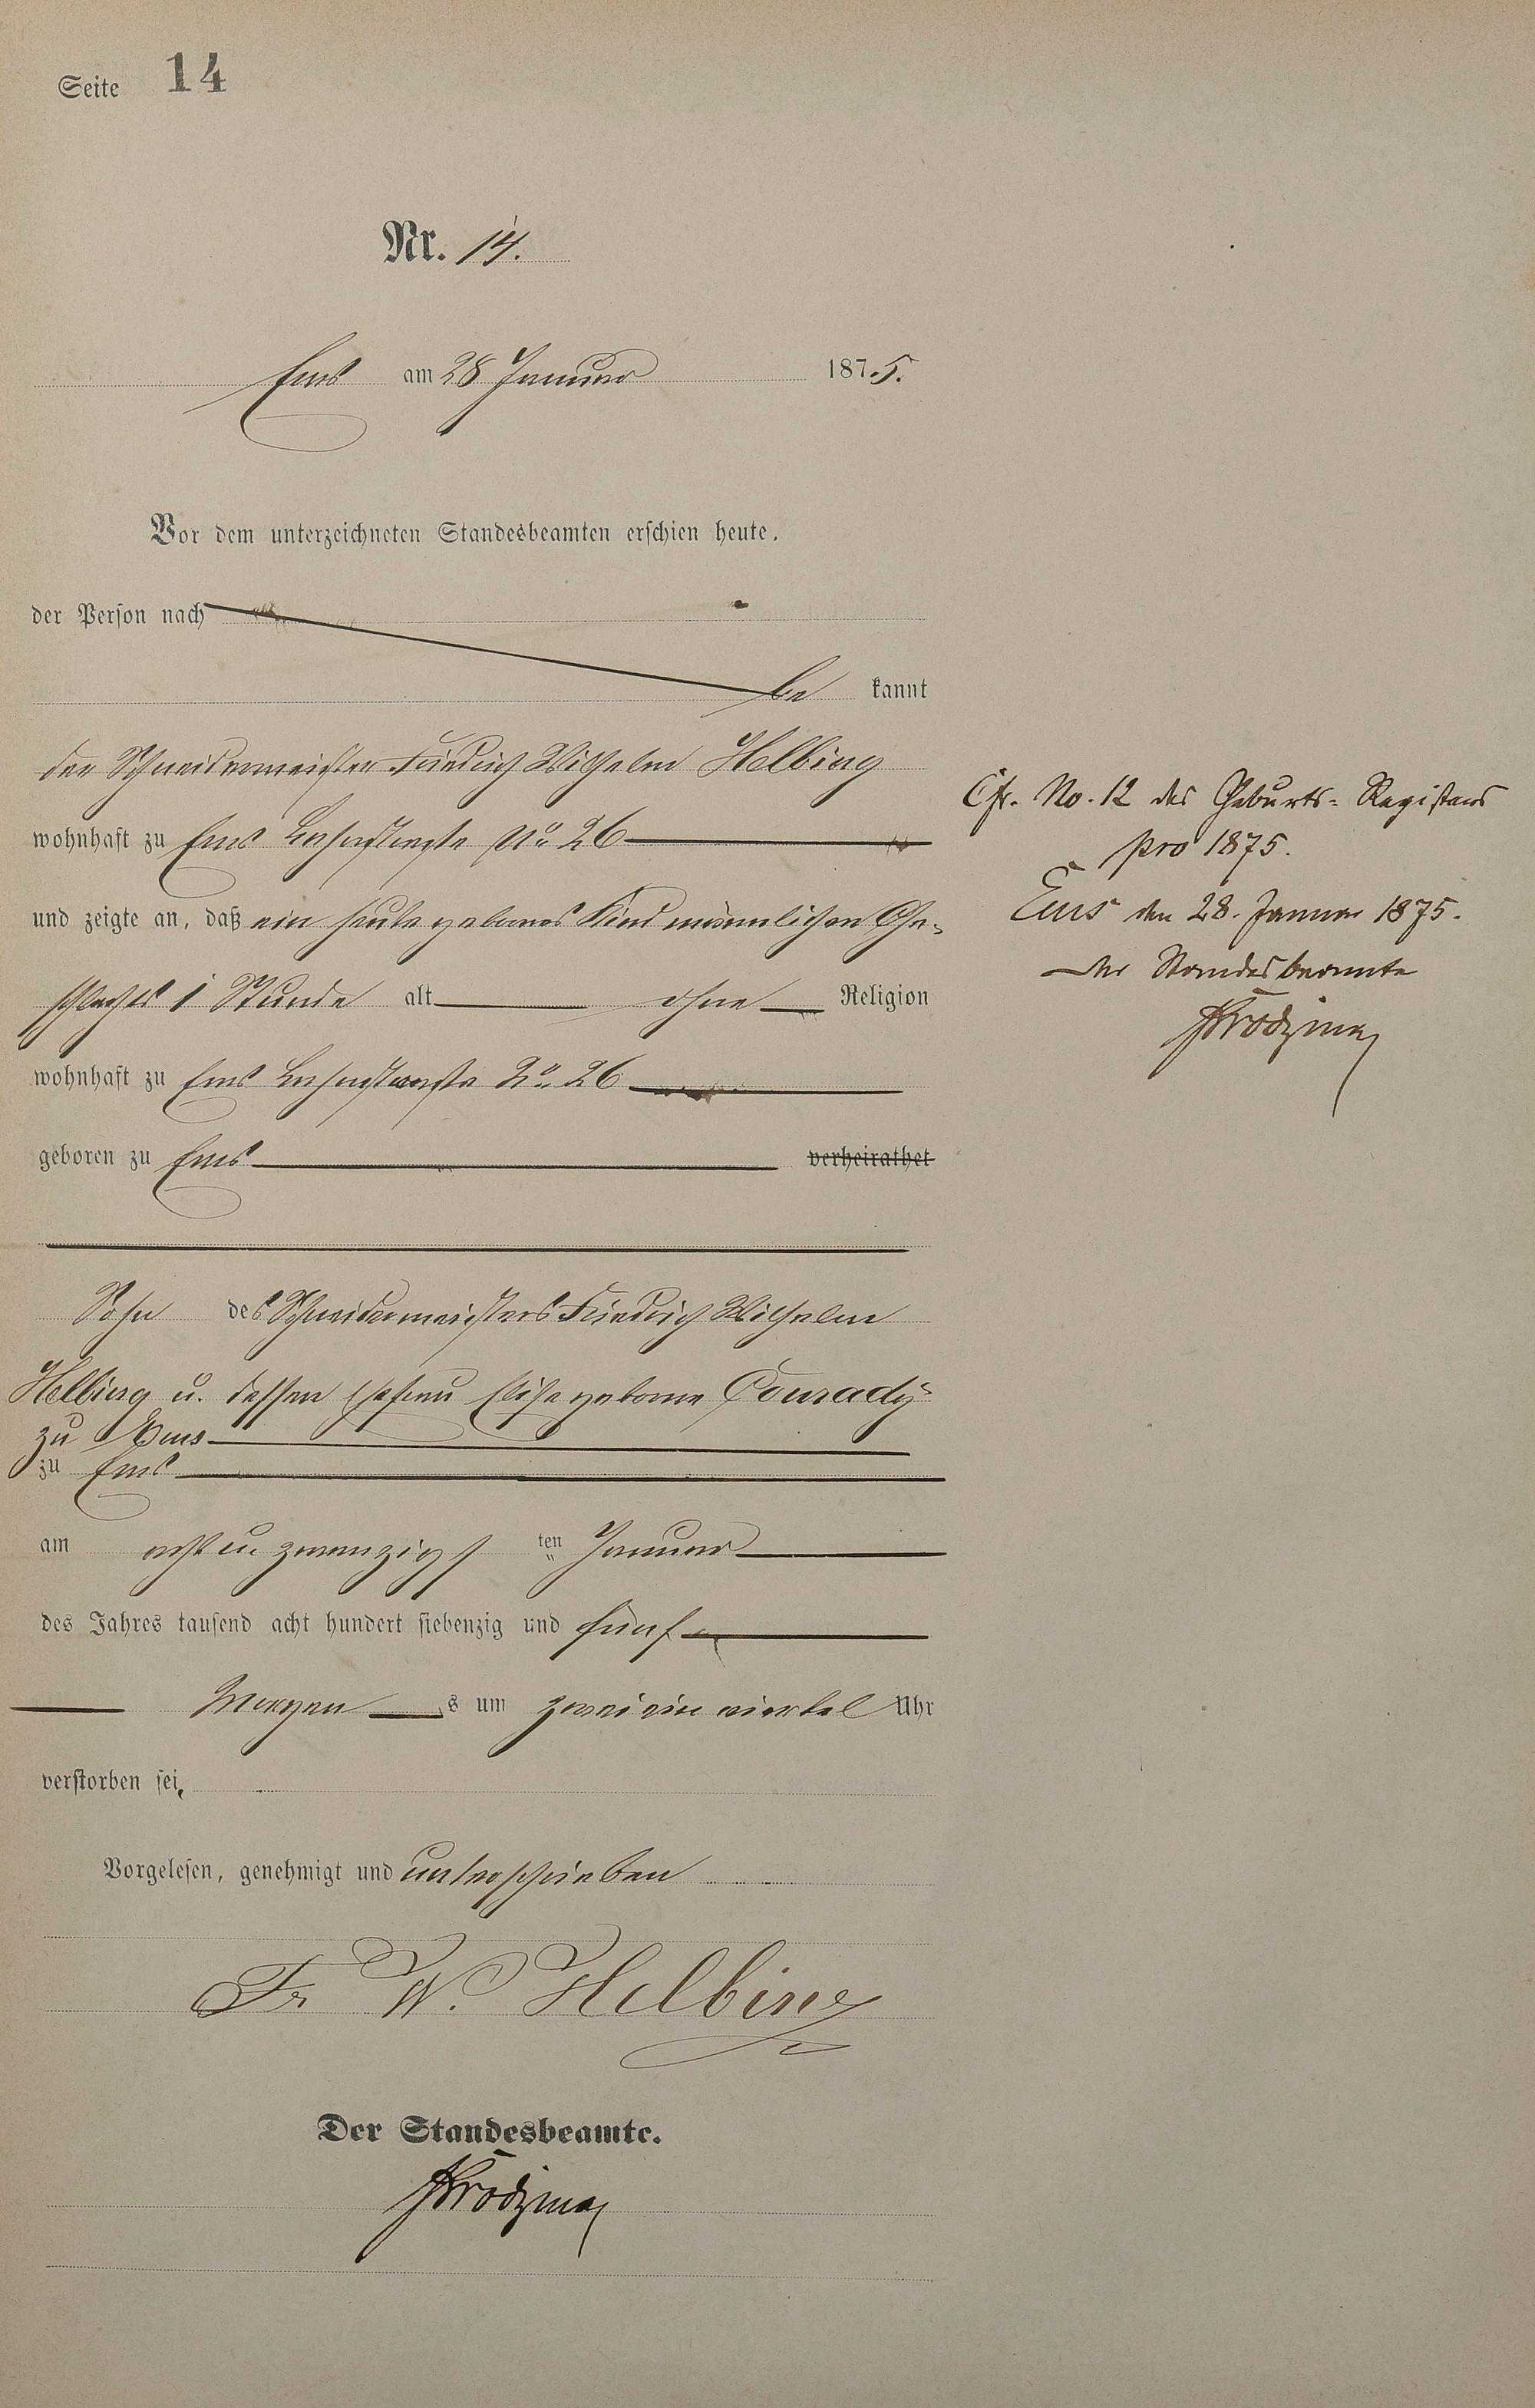 Seite 14
Nr. 14.
Ems am 28 Januar 1875.
Vor dem unterzeichneten Standesbeamten erschien heute,
der Person nach
be kannt
der Schneidermeister Friedrich Wilhelm Helbing
wohnhaft zu Ems No 26
und zeigte an, daß ein heute gebornes Kind männlichen Ge-
schlechts 1 Stunde alt ohne Religion
wohnhaft zu Ems No. 26
geboren zu Ems verheirathet
Sohn des Schneidermeisters Friedrich Wilhelm
Helbing u. dessen Ehefrau Elise geborne Conrady
zu Ems
zu Ems
am acht u zwanzigs ten Januar
des Jahres tausend acht hundert siebenzig und fünf
Morgen s um zwei ein viertel Uhr
verstorben sei.
Vorgelesen, genehmigt und unterschrieben
Fr W. Helbing
Der Standesbeamte.
Cfr. No. 12 des Geburts-Registers
pro 1875.
Ems den 28. Januar 1875.
Der Standesbeamte